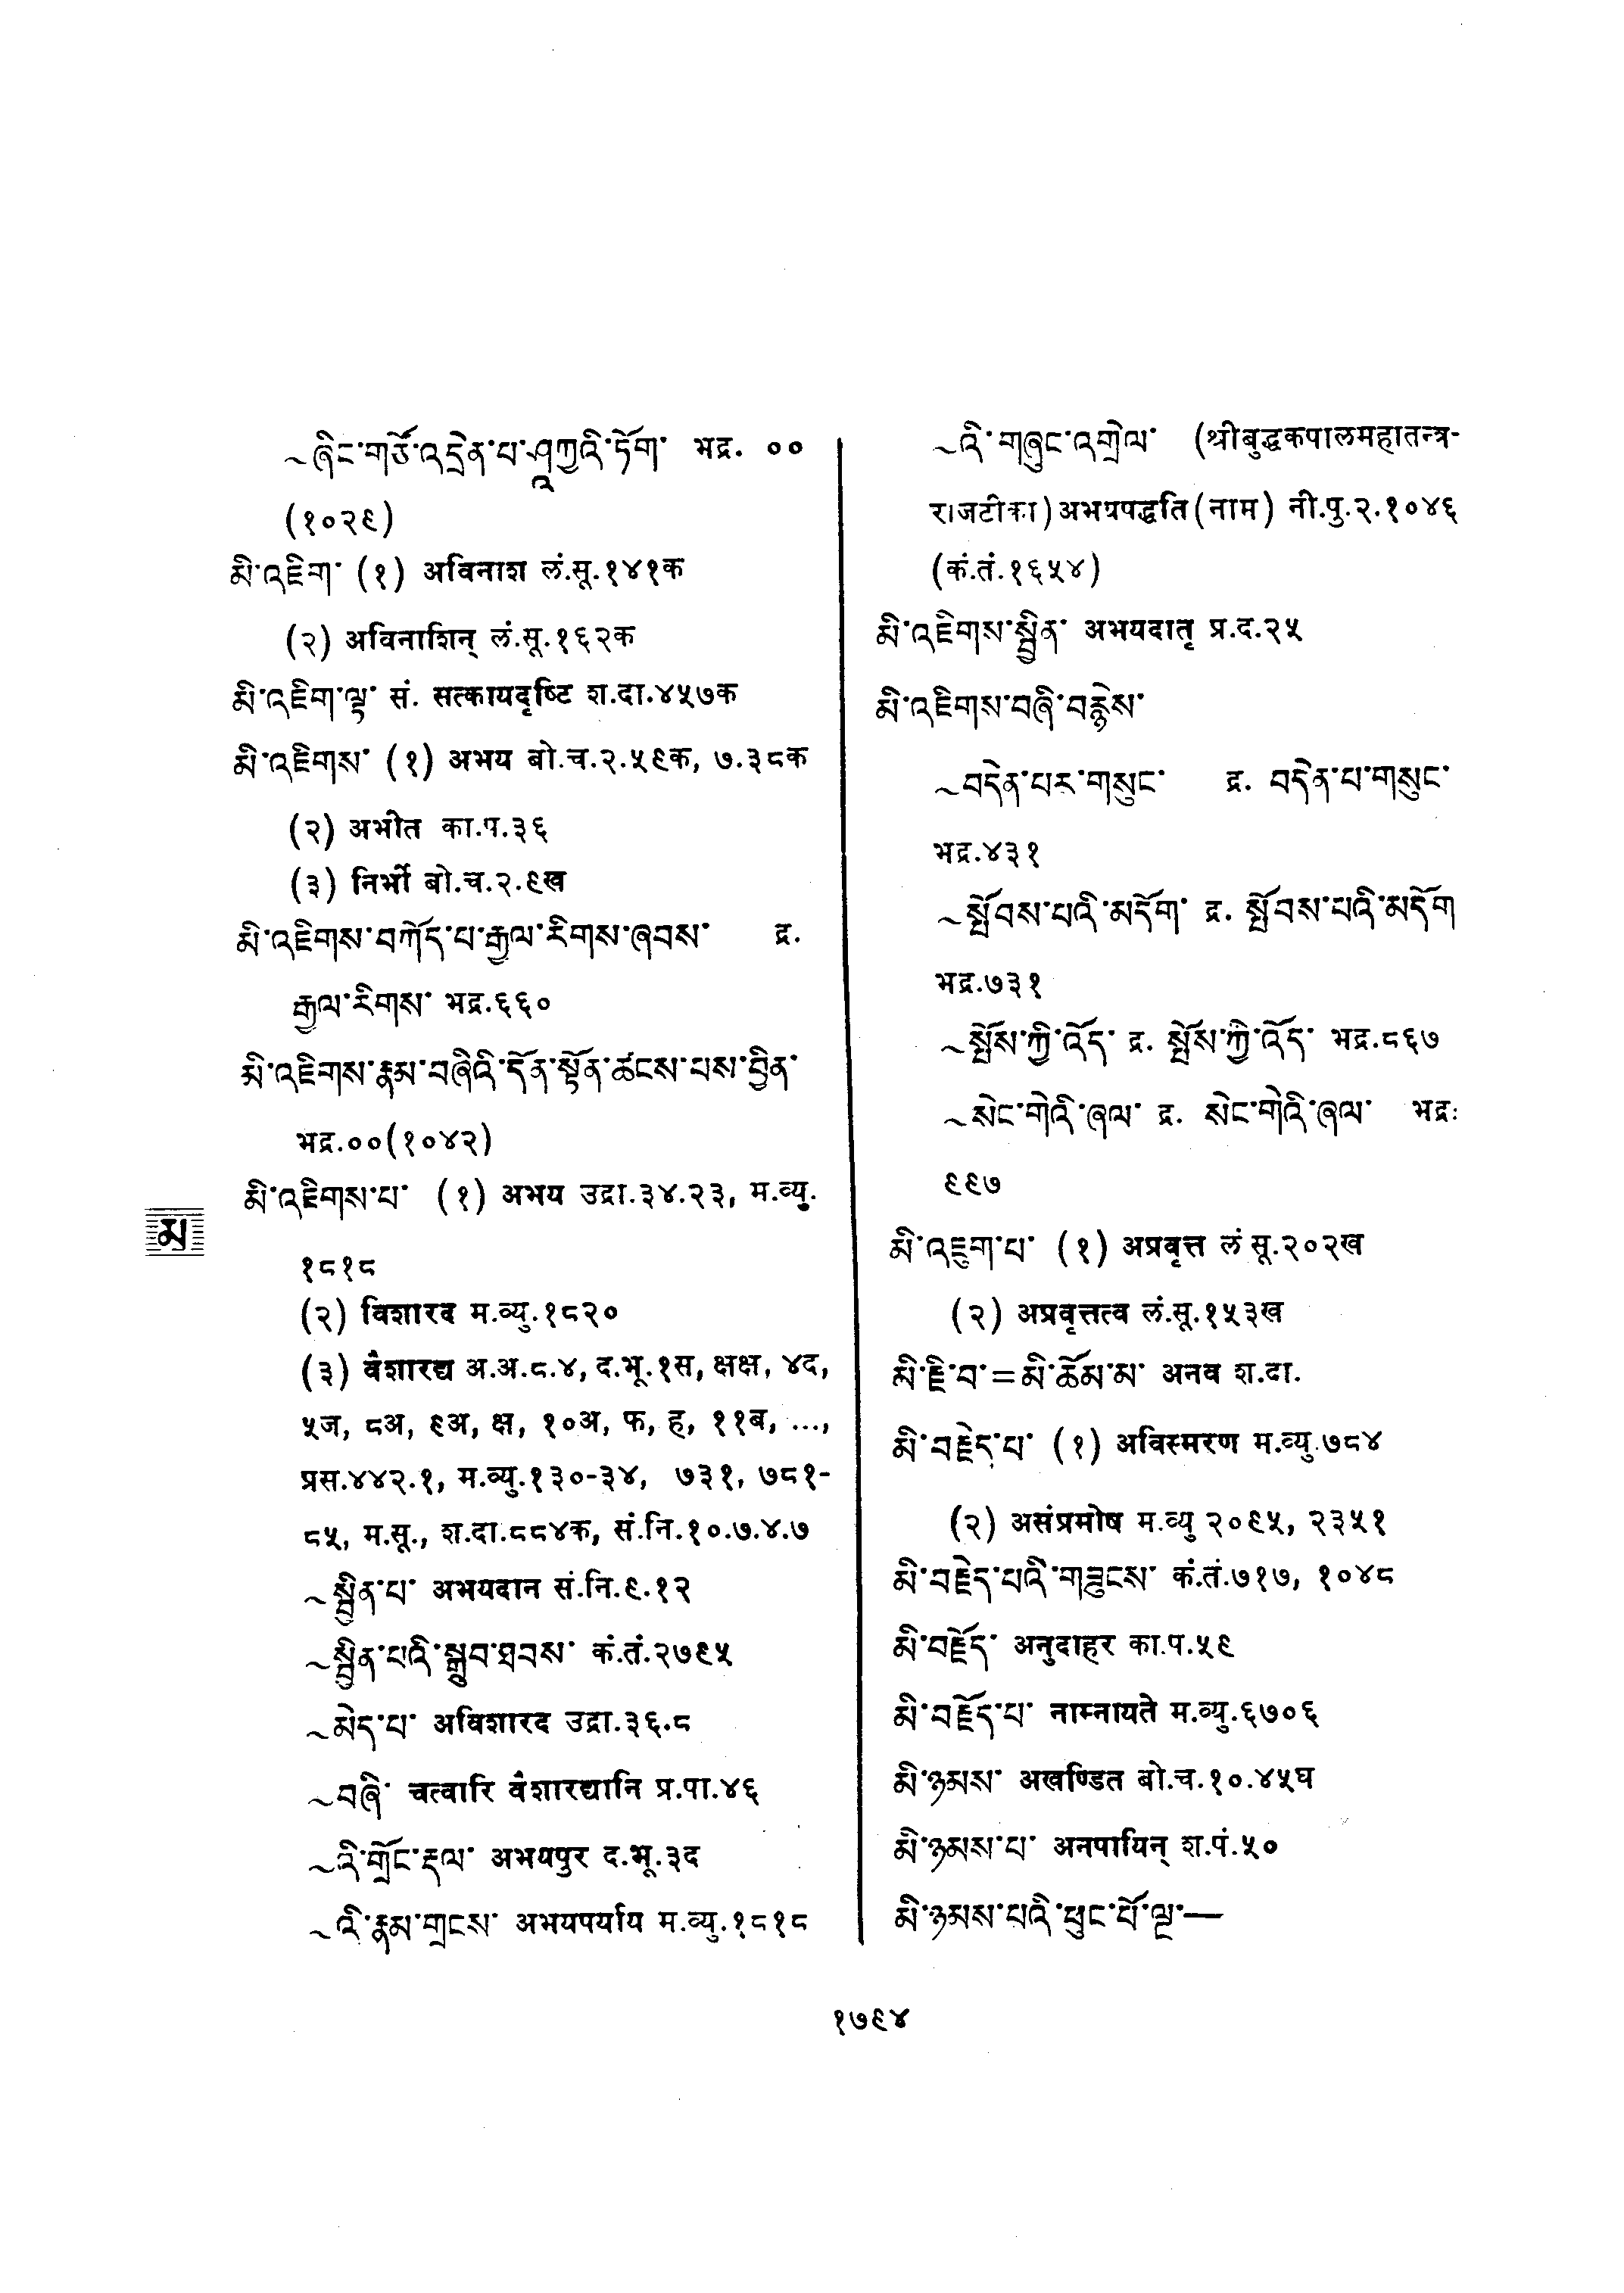 ~ཞིང་གཙོ་འདྲེན་པ་ཤཱཀྱའི་ཏོག་ भद्र. ००
(१०२९)
མི་འཇིག་ (१) अविनाश लं.सू.१४१क
(२) अविनाशिन् लं.सू.१६२क
མི་འཇིག་ལྟ་ सं. सत्कायदृष्टि श.दा.४५७क
མི་འཇིགས་ (१) अभय बो.च.२.५९क, ७.३८क
(२) अभीत का.प.३६
(३) निर्भी बो.च.२.९ख
མི་འཇིགས་བཀོད་པ་རྒྱལ་རིགས་ཞབས་ द्र.
རྒྱལ་རིགས་ भद्र.६६०
མི་འཇིགས་རྣམ་བཞིའི་དོན་སྟོན་ཚངས་པས་བྱིན་
भद्र.००(१०४२)
མི་འཇིགས་པ་ (१) अभय उद्रा.३४.२३, म.व्यु.
१८१८
(२) विशारद म.व्यु.१८२०
(३) वैशारद्य अ.अ.८.४, द.भू.१स, क्षक्ष, ४द,
५ज, ८अ, ९अ, क्ष, १०अ, फ, ह, ११ब, ...,
प्रस.४४२.१, म.व्यु.१३०-३४, ७३१, ७८१-
८५, म.सू., श.दा.८८४क, सं.नि.१०.७.४.७
~སྦྱིན་པ་ अभयदान सं.नि.९.१२
~སྦྱིན་པའི་སྒྲུབ་ཐབས་ कं.तं.२७९५
~མེད་པ་ अविशारद उद्रा.३६.८
~བཞི་ चत्वारि वैशारद्यानि प्र.पा.४६
~འི་གྲོང་རྡལ་ अभयपुर द.भू.३द
~འི་རྣམ་གྲངས་ अभयपर्याय म.व्यु.१८१८
མ
~འི་གཞུང་འགྲེལ་ (श्रीबुद्धकपालमहातन्त्र-
राजटीका) अभयपद्धति (नाम) नी.पु.२.१०४६
(कं.तं.१६५४)
མི་འཇིགས་སྦྱིན་ अभयदातृ प्र.द.२५
མི་འཇིགས་བཞི་བརྙེས་
~བདེན་པར་གསུང་ द्र. བདེན་པ་གསུང་
भद्र.४३१
~སྤོབས་པའི་མདོག་ द्र. སྤོབས་པའི་མདོག
भद्र.७३१
~སྤོས་ཀྱི་འོད་ द्र. སྤོས་ཀྱི་འོད་ भद्र.८६७
~སེང་གེའི་ཞལ་ द्र. སེང་གེའི་ཞལ་ भद्र:
९९७
མི་འཇུག་པ་ (१) अप्रवृत्त लं सू.२०२ख
(२) अप्रवृत्तत्व लं.सू.१५३ख
མི་རྗི་བ་=མི་ཚོམ་མ་ अनव श.दा.
མི་བརྗེད་པ་ (१) अविस्मरण म.व्यु.७८४
(२) असंप्रमोष म.व्यु २०९५, २३५१
མི་བརྗེད་པའི་གཟུངས་ कं.तं.७१७, १०४८
མི་བརྗོད་ अनुदाहर का.प.५९
མི་བརྗོད་པ་ नाम्नायते म.व्यु.६७०६
མི་ཉམས་ अखण्डित बो.च.१०.४५घ
མི་ཉམས་པ་ अनपायिन् श.पं.५०
མི་ཉམས་པའི་ཕུང་པོ་ལྔ་—
१७९४